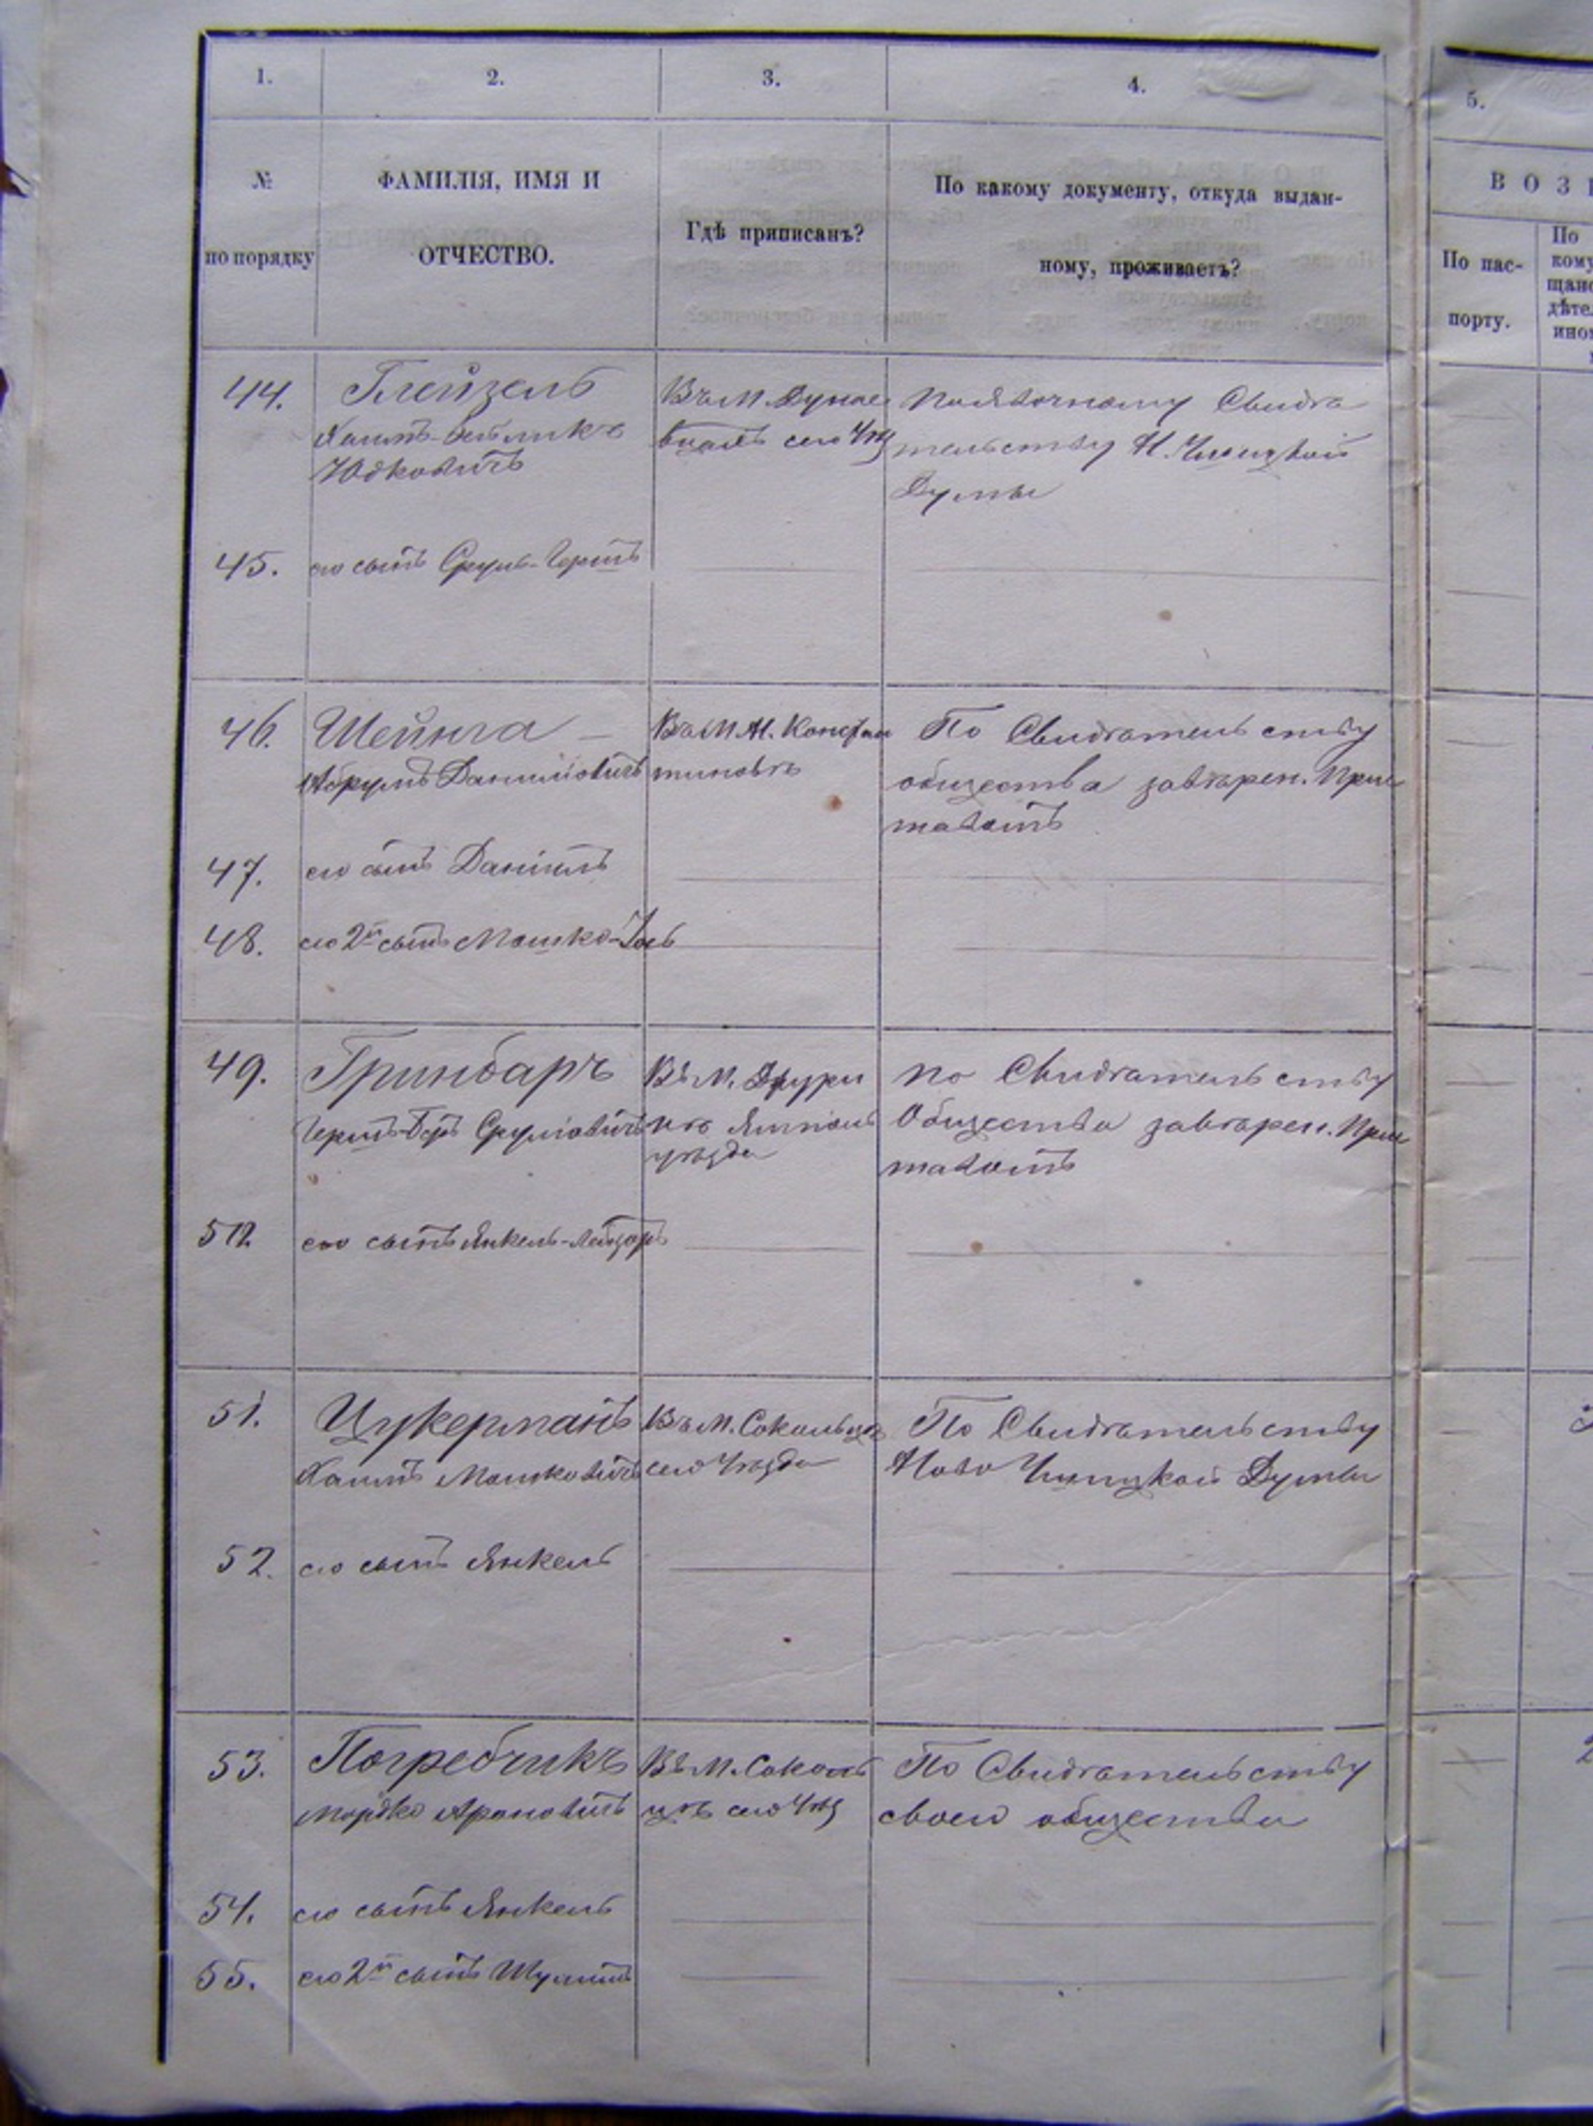 1.
2.
3.
4.
5.
№
по порядку
ФАМИЛІЯ, ИМЯ И
ОТЧЕСТВО.
Гдѣ приписанъ?
По какому документу, откуда выдан-
ному, проживаетъ?
ВОЗ
По пас-
порту.
По
кому
щан
дѣте
ино
44.
Глейзель
Хаимъ-Бейликъ
Юдковичъ
Въ М. Дунае
вцахъ сего Уѣз
По явочному Свидѣ
тельству Н. Ушицкой
Думы
45.
его сынъ Сруль-Гершъ
46.
Шейнга
Абрумъ Даниловичъ
Въ М. Н. Констан
тиновѣ
По Свидѣтельству
общества завѣрен. При
тавомъ
47.
его сынъ Даніилъ
48.
его 2й сынъ Мошко-Іось
49.
Гринбаръ
Гершъ-Беръ Сруліовичъ
Въ М.
уѣзда
По Свидѣтельству
Общества завѣрен. При
тавомъ
50.
его сынъ Янкель-Лейзоръ
51.
Цукерманъ
Хаимъ Мошковичъ
Въ М. Сокольцѣ
сего Уѣзда
По Свидѣтельству
Ново Ушицкой Думы
52.
его сынъ Янкель
53.
Погребчикъ
Мордко Ароновичъ
Въ М. Соколь
цѣ сего Уѣз
По Свидѣтельству
своего общества
54.
его сынъ Янкель
55.
его 2й сынъ Шулимъ